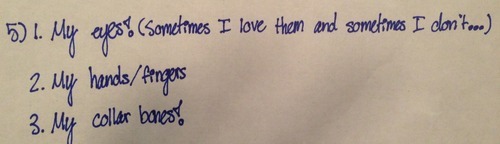 5) 1. My eyes! (Sometimes I love them and sometimes I don't...)
2. My hands/fingers
3. My collar bones!